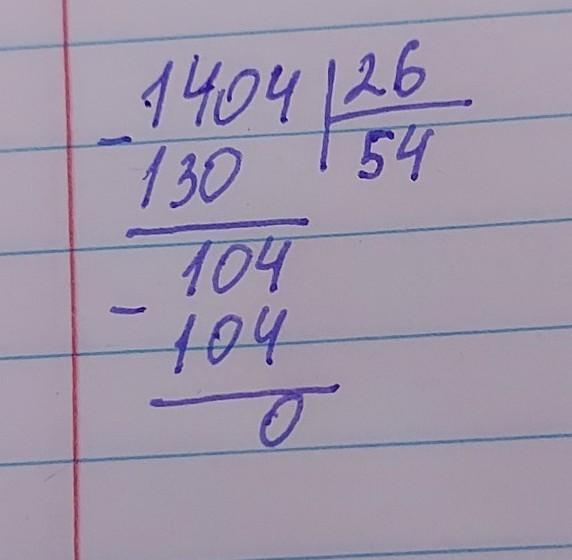 1404 | 26
- 130 | 54
104
- 104
0